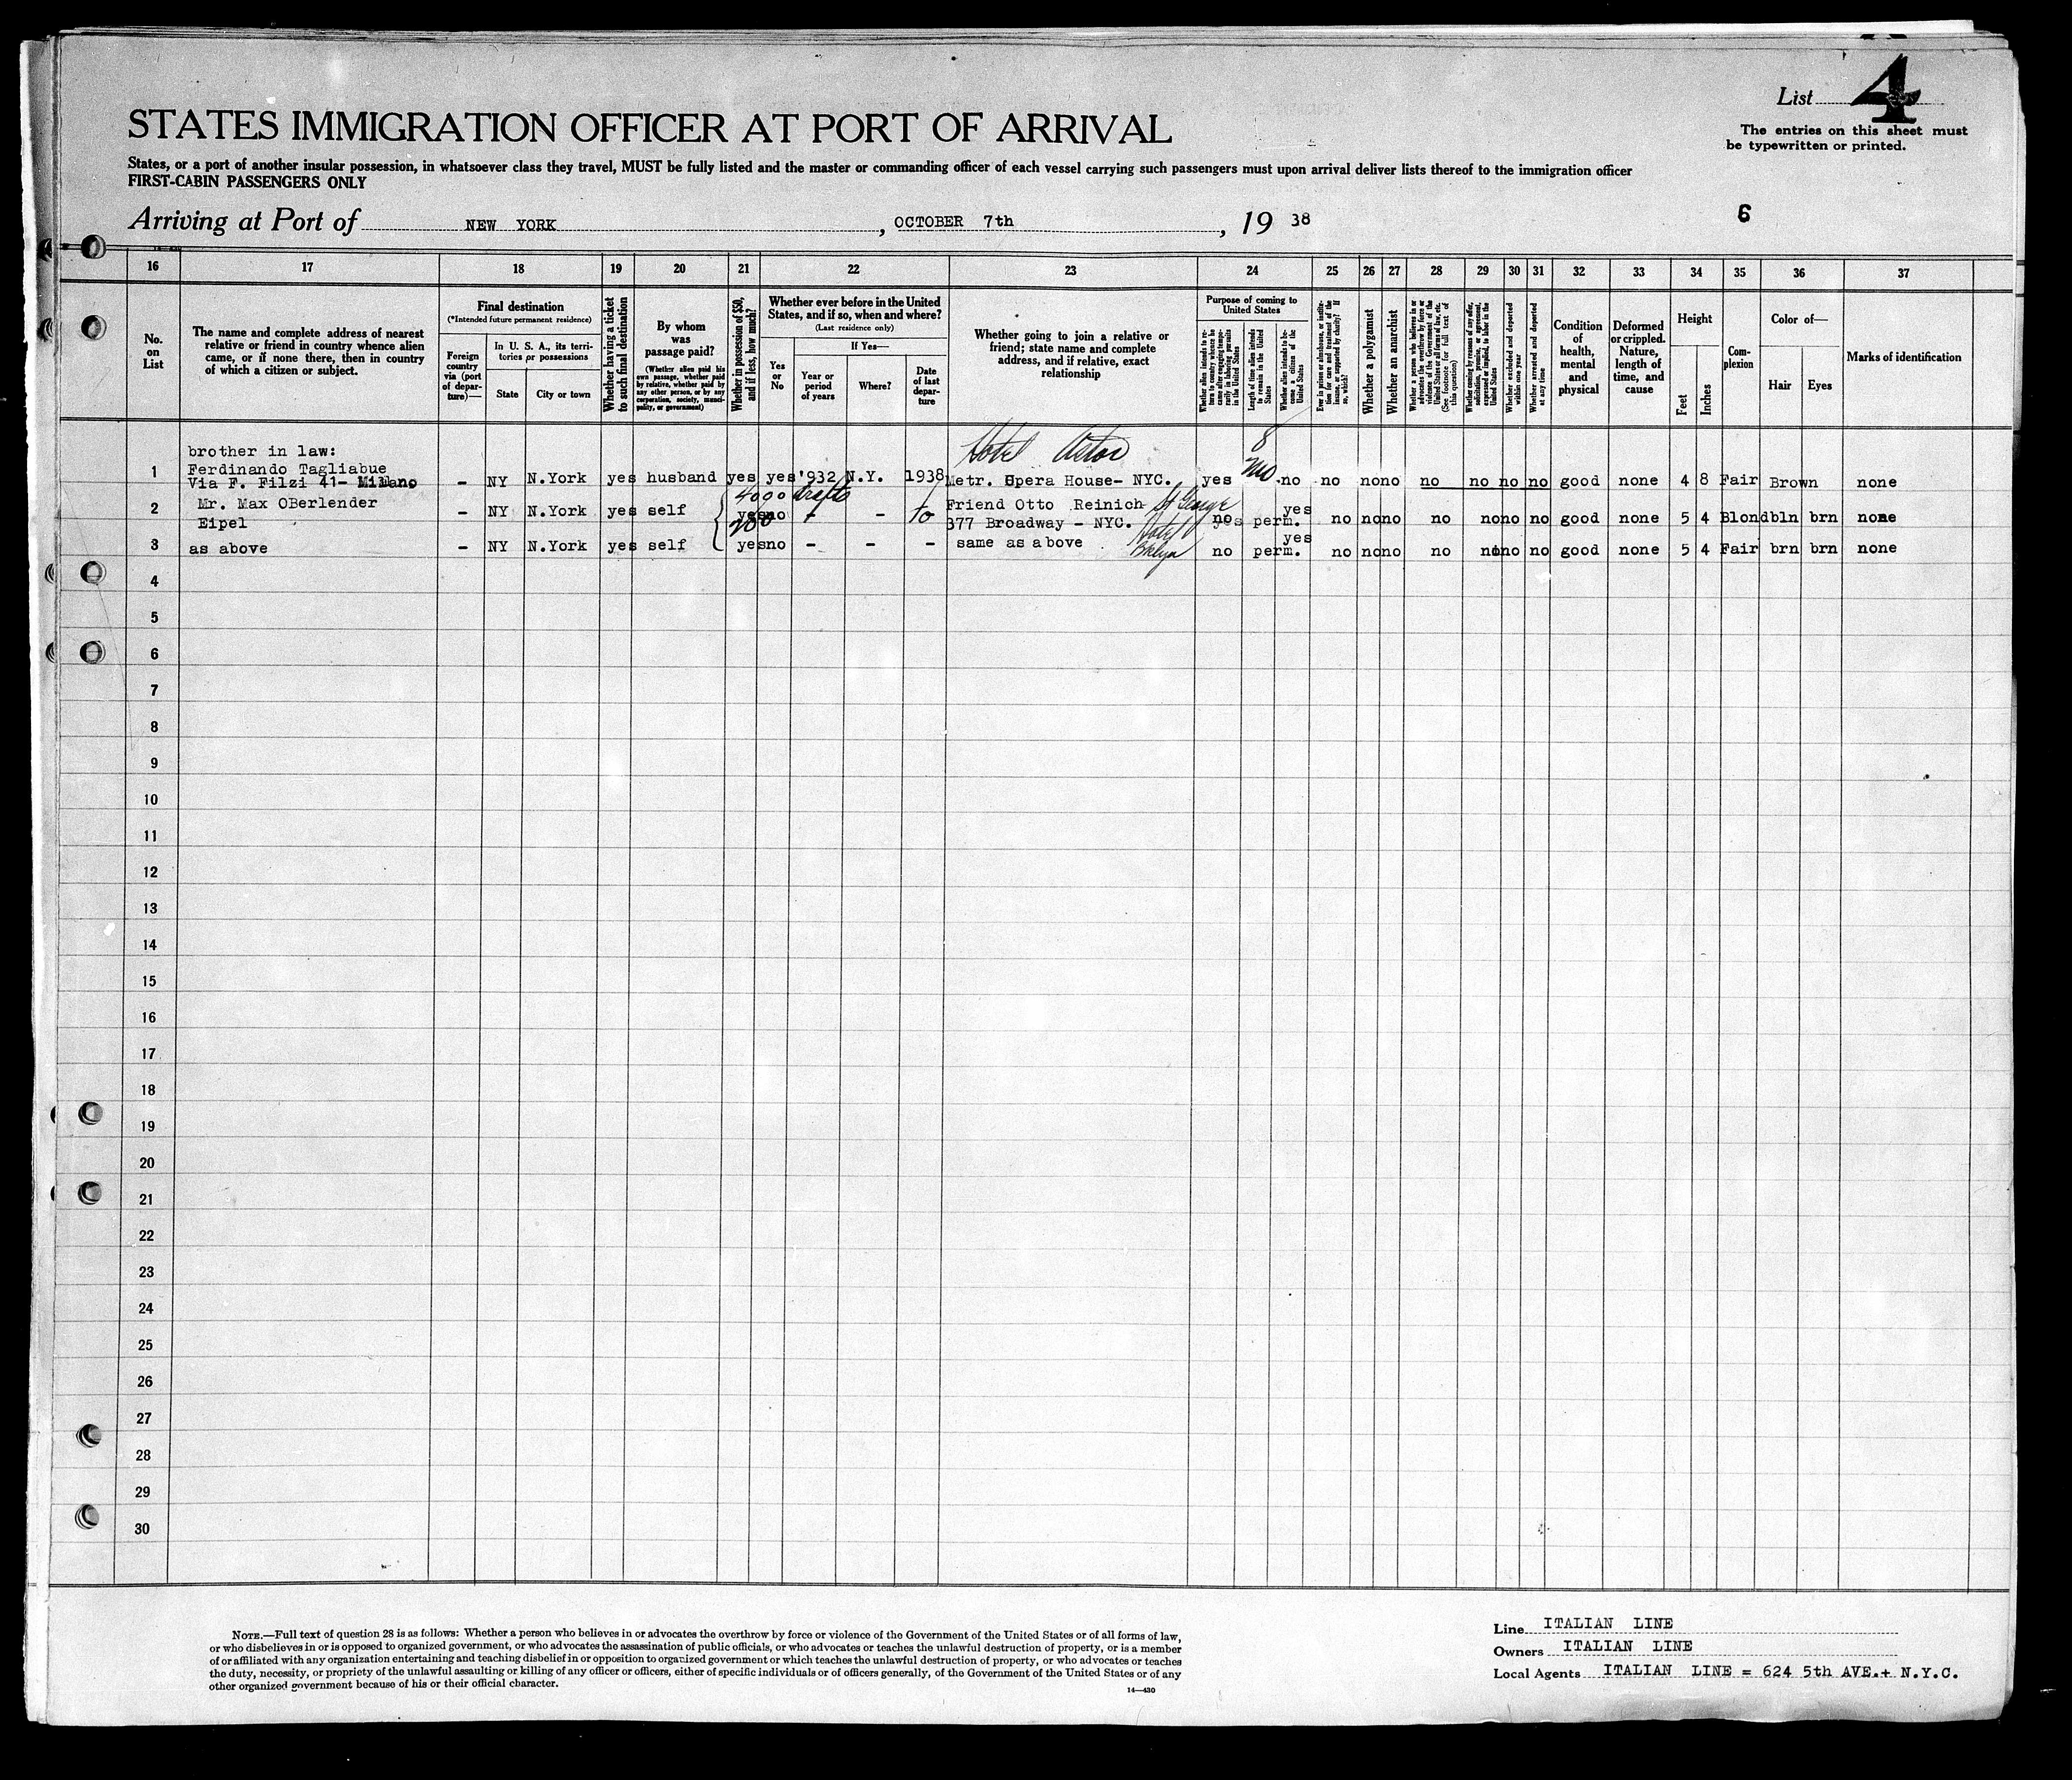 List 4
The entries on this sheet must
be typewritten or printed.
STATES IMMIGRATION OFFICER AT PORT OF ARRIVAL
States, or a port of another insular possession, in whatsoever class they travel, MUST be fully listed and the master or commanding officer of each vessel carrying such passengers must upon arrival deliver lists thereof to the immigration officer
FIRST-CABIN PASSENGERS ONLY
Arriving at Port of NEW YORK, OCTOBER 7th, 19 38
6
16 17 18 19 20 21 22 23 24 25 26 27 28 29 30 31 32 33 34 35 36 37
No.
on
List
The name and complete address of nearest
relative or friend in country whence alien
came, or if none there, then in country
of which a citizen or subject.
Final destination
(*Intended future permanent residence)
Foreign
country
via (port
of depar-
ture)—
In U. S. A., its terri-
tories or possessions
State
City or town
Whether having a ticket
to such final destination
By whom
was
passage paid?
(Whether alien paid his
own passage, whether paid
by relative, whether paid by
any other person, or by any
corporation, society, munici-
pality, or government)
Whether in possession of $50,
and if less, how much?
Whether ever before in the United
States, and if so, when and where?
(Last residence only)
Yes
or
No
If Yes—
Year or
period
of years
Where?
Date
of last
depar-
ture
Whether going to join a relative or
friend; state name and complete
address, and if relative, exact
relationship
Purpose of coming to
United States
Whether alien intends to re-
turn to country whence he
came after engaging tempo-
rarily in laboring pursuits
in the United States
Length of time alien intends
to remain in the United
States
Whether alien intends to be-
come a citizen of the
United States
Ever in prison or almshouse, or institu-
tion for care and treatment of the
insane, or supported by charity? If
so, which?
Whether a polygamist
Whether an anarchist
Whether a person who believes in or
advocates the overthrow by force or
violence of the Government of the
United States or all forms of law, etc.
(See footnote for full text of
this question)
Whether coming by reasons of any offer,
solicitation, promise, or agreement,
expressed or implied, to labor in the
United States
Whether excluded and deported
within one year
Whether arrested and deported
at any time
Condition
of
health,
mental
and
physical
Deformed
or crippled.
Nature,
length of
time, and
cause
Height
Feet
Inches
Com-
plexion
Color of—
Hair
Eyes
Marks of identification
brother in law:
Hotel Astor
8
1 Ferdinando Tagliabue
Via F. Filzi 41- Milano – NY N.York yes husband yes yes '932 N.Y. 1938 Metr. Opera House- NYC. yes mo no no no no no no no no good none 4 8 Fair Brown none
4000 drafts
2 Mr. Max OBerlender – NY N.York yes self yes no - – to Friend Otto Reinich St George yes
Eipel 200 377 Broadway – NYC. Hotel no perm. no no no no no no no good none 5 4 Blond bln brn none
3 as above – NY N.York yes self yes no – – – same as above Bklyn no perm. yes no no no no no no no good none 5 4 Fair brn brn none
4
5
6
7
8
9
10
11
12
13
14
15
16
17
18
19
20
21
22
23
24
25
26
27
28
29
30
NOTE.—Full text of question 28 is as follows: Whether a person who believes in or advocates the overthrow by force or violence of the Government of the United States or of all forms of law,
or who disbelieves in or is opposed to organized government, or who advocates the assassination of public officials, or who advocates or teaches the unlawful destruction of property, or is a member
of or affiliated with any organization entertaining and teaching disbelief in or opposition to organized government or which teaches the unlawful destruction of property, or who advocates or teaches
the duty, necessity, or propriety of the unlawful assaulting or killing of any officer or officers, either of specific individuals or of officers generally, of the Government of the United States or of any
other organized government because of his or their official character.
14—430
Line ITALIAN LINE
Owners ITALIAN LINE
Local Agents ITALIAN LINE = 624 5th AVE.+ N.Y.C.